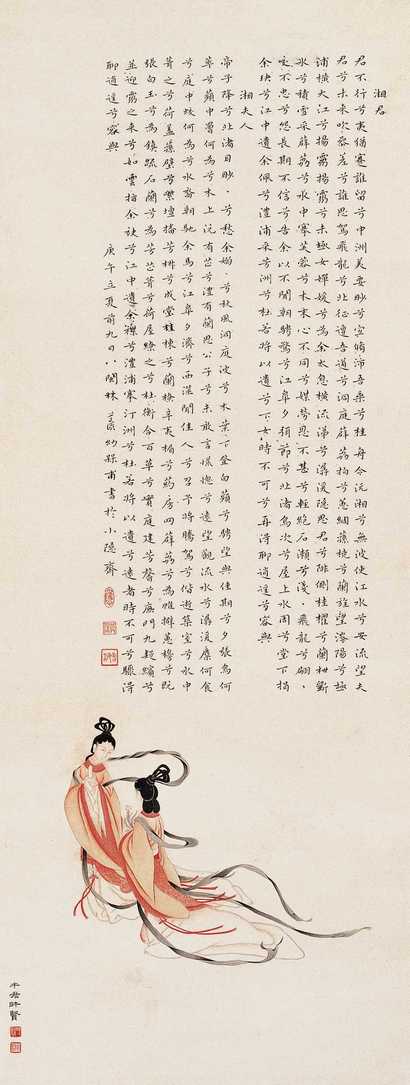 湘君
君不行兮夷猶蹇誰留兮中洲美要眇兮宜修沛吾乘兮桂舟令沅湘兮無波使江水兮安流望夫
君兮未來吹參差兮誰思駕飛龍兮北征邅吾道兮洞庭薜荔柏兮蕙綢蓀橈兮蘭旌望涔陽兮極
浦橫大江兮揚靈揚靈兮未極女嬋媛兮為余太息橫流涕兮潺湲隱思君兮陫側桂櫂兮蘭枻斲
冰兮積雪采薜荔兮水中搴芙蓉兮木末心不同兮媒勞恩不甚兮輕絕石瀨兮淺々飛龍兮翩々
交不忠兮怨長期不信兮告余以不閒朝騁騖兮江皋夕弭節兮北渚鳥次兮屋上水周兮堂下捐
余玦兮江中遺余佩兮澧浦采芳洲兮杜若將以遺兮下女時不可兮再得聊逍遙兮容與
湘夫人
帝子降兮北渚目眇々兮愁余嫋々兮秋風洞庭波兮木葉下登白薠兮騁望與佳期兮夕張鳥何
萃兮蘋中罾何為兮木上沅有芷兮澧有蘭思公子兮未敢言慌惚兮遠望觀流水兮潺湲麋何食
兮庭中蛟何為兮水裔朝馳余馬兮江皋夕濟兮西澨聞佳人兮召予將騰駕兮偕逝築室兮水中
葺之兮荷蓋蓀壁兮紫壇播芳椒兮成堂桂棟兮蘭橑辛夷楣兮藥房罔薜荔兮為帷擗蕙櫋兮既
張白玉兮為鎮疏石蘭兮為芳芷葺兮荷屋繚之兮杜衡合百草兮實庭建芳馨兮廡門九嶷繽兮
並迎靈之來兮如雲捐余袂兮江中遺余褋兮澧浦搴汀洲兮杜若將以遺兮遠者時不可兮驟得
聊逍遙兮容與
庚午立夏前九日八閩林幼甫書於小隱齋
時賢